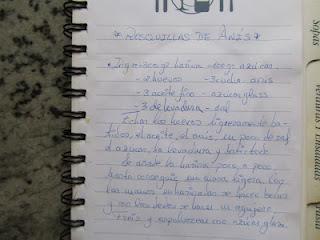 * ROSQUILLAS DE ANÍS *
• Ingredientes: harina - 100gr azúcar
- 2 huevos - 3 cdta anís
- 3 aceite fino - azúcar glass
- 3 de levadura - sal
Echar los huevos ligeramente ba-
tidos, el aceite, el anís, un poco de sal
el azúcar, la levadura y batir todo
de añade la harina poco a poco
hasta conseguir una masa ligera. Con
las manos en harinadas se hacen bolas
y con los dedos se hace un agujero.
freís y espolvorear con azúcar glass.
Sopas
Verduras y Ensaladas